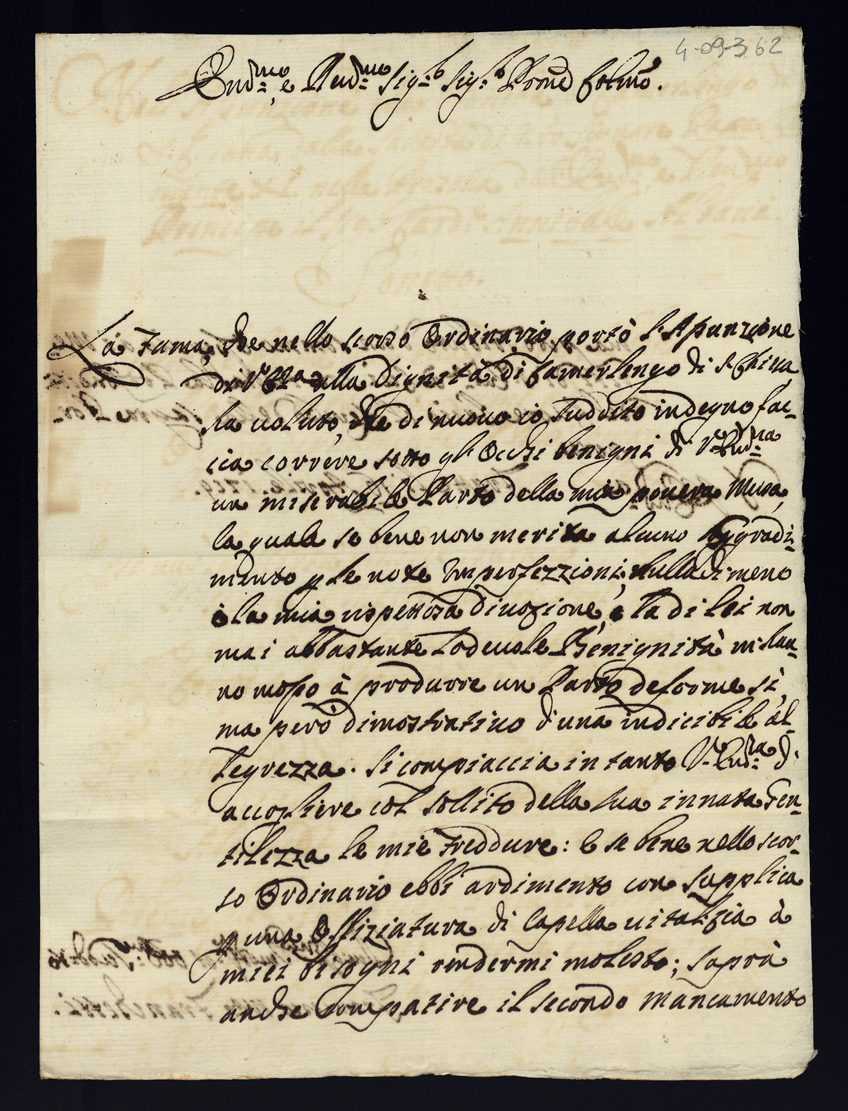 4-09-362
Em.mo, e Rev.mo Sig.r Sig.r Prone Colmo.
La Fama, che nello scorso Ordinario portò l'Assunzione
di V. Em.za alla Dignità di Camerlengo di S. Chiesa,
ha voluto, che di nuovo io suddito indegno fac-
cia correre sotto gl'Occhi benigni di V. Em.za
un miserabile Parto della mia povera Musa,
la quale se bene non merita alcuno Aggradi-
mento p le note Imperfezzioni, nulladimeno
e la mia rispettosa divozione, e la di lei non
mai abbastante lodevole Benignità m'han-
no mosso à produrre un Parto deforme sì,
ma però dimostrativo d'una indicibile al-
legrezza. Si compiaccia in tanto V. Em.za d'
accogliere col sollito della sua innata Gen-
tilezza le mie Freddure: e se bene nello scor-
so Ordinario ebbi ardimento con supplica
p una Offiziatura di Capella vitalizia à
miei bisogni rendermi molesto; saprà
anche compatire il secondo mancamento